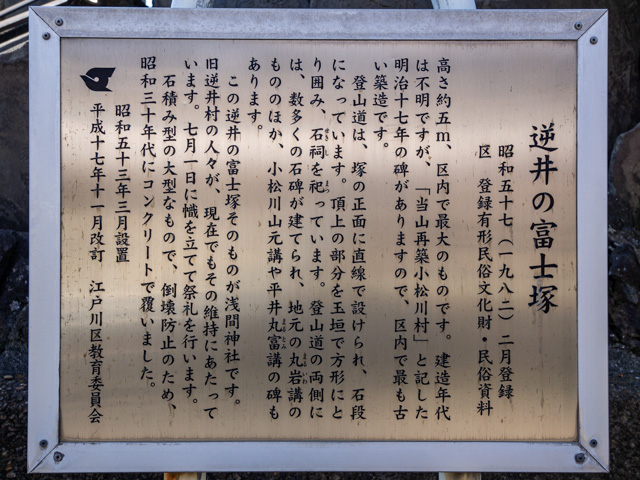 逆井の富士塚
昭和五十七（一九八二）二月登録
区　登録有形民俗文化財・民俗資料
高さ約五ｍ、区内で最大のものです。建造年代
は不明ですが、「当山再築小松川村」と記した
明治十七年の碑がありますので、区内で最も古
い築造です。
登山道は、塚の正面に直線で設けられ、石段
になっています。頂上の部分を玉垣で方形にと
り囲み、石祠を祀っています。登山道の両側に
は、数多くの石碑が建てられ、地元の丸岩講の
もののほか、小松川山元講や平井丸富講の碑も
あります。
この逆井の富士塚そのものが浅間神社です。
旧逆井村の人々が、現在でもその維持にあたって
います。七月一日に幟を立てて祭礼を行います。
石積み型の大型なもので、倒壊防止のため、
昭和三十年代にコンクリートで覆いました。
昭和五十三年三月設置
平成十七年十一月改訂　江戸川区教育委員会